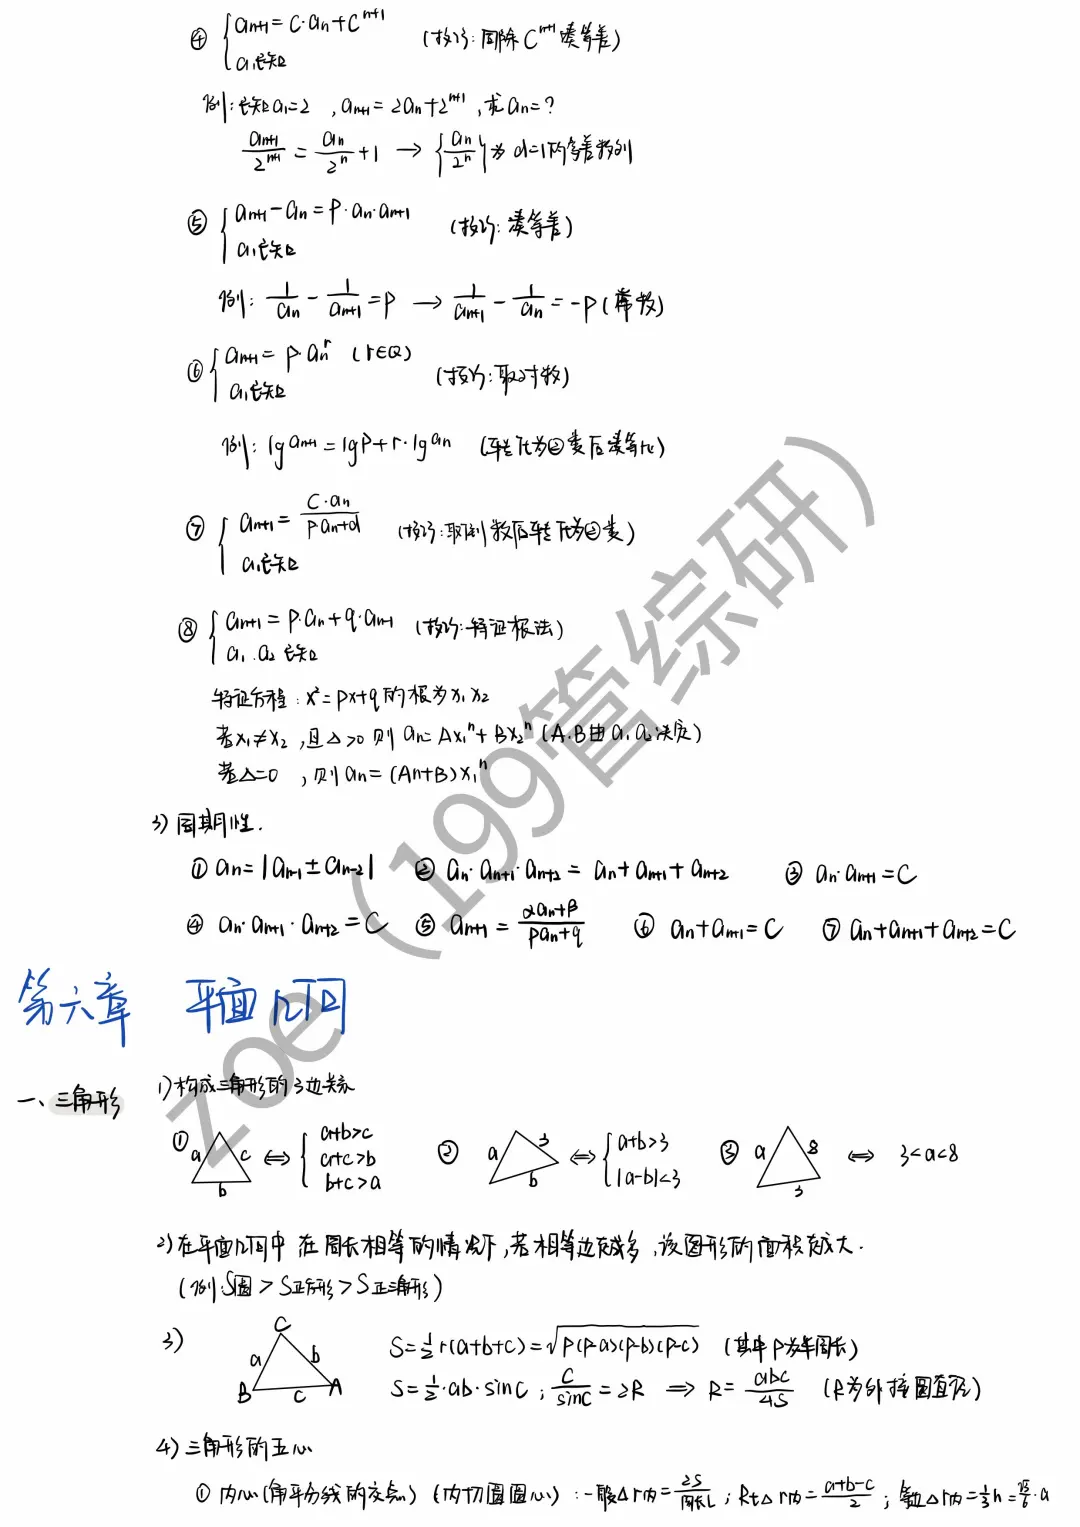 ④ { aₙ₊₁=C·aₙ+Cⁿ⁺¹ (技巧:同除Cⁿ⁺¹凑等差)
a₁已知
例:已知a₁=2 ,aₙ₊₁=2aₙ+2ⁿ⁺¹,求aₙ=?
aₙ₊₁/2ⁿ⁺¹ = aₙ/2ⁿ +1 → {aₙ/2ⁿ}为d=1的等差数列
⑤ { aₙ₊₁-aₙ=P·aₙ·aₙ₊₁ (技巧:凑等差)
a₁已知
例: 1/aₙ - 1/aₙ₊₁ =P → 1/aₙ₊₁ - 1/aₙ =-P(常数)
⑥ { aₙ₊₁=P·aₙʳ (r∈Q) (技巧:取对数)
a₁已知
例: lg aₙ₊₁ =lgP+r·lg aₙ (转化为②类后凑等比)
⑦ { aₙ₊₁= C·aₙ/(Paₙ+d) (技巧:取倒数后转化为②类)
a₁已知
⑧ { aₙ₊₁=P·aₙ+q·aₙ₋₁ (技巧:特征根法)
a₁.a₂ 已知
特征方程:x²=px+q的根为x₁x₂
若x₁≠x₂,且△>0则 aₙ=Ax₁ⁿ+Bx₂ⁿ(A.B由a₁a₂决定)
若△=0 ,则aₙ=(An+B)x₁ⁿ
3)周期性.
① aₙ=|aₙ₋₁±aₙ₋₂| ② aₙ·aₙ₊₁·aₙ₊₂=aₙ+aₙ₊₁+aₙ₊₂ ③ aₙ·aₙ₊₁=C
④ aₙ·aₙ₊₁·aₙ₊₂=C ⑤ aₙ₊₁= (αaₙ+β)/(Paₙ+q) ⑥ aₙ+aₙ₊₁=C ⑦ aₙ+aₙ₊₁+aₙ₊₂=C
第六章 平面几何
一、三角形 1)构成三角形的3边关系
① a c b ⇔ { a+b>c a+c>b b+c>a ② a 3 b ⇔ { a+b>3 |a-b|<3 ③ a 8 3 ⇔ 3<a<8
2)在平面几何中 在周长相等的情况下,若相等边越多,该图形的面积越大.
(例:S圆>S正方形>S正三角形)
3) C a b B c A S=½r(a+b+c)=√P(P-a)(P-b)(P-c) (其中P为半周长)
S=½·ab·sinC ; C/sinC =2R ⇒ R= abc/4S (R为外接圆直径)
4)三角形的五心
①内心(角平分线的交点)(内切圆圆心):一般△r内= 2S/周长L ; Rt△r内= (a+b-c)/2 ; 等边△r内=⅓h= √3/6 ·a
zoe(199管综研)